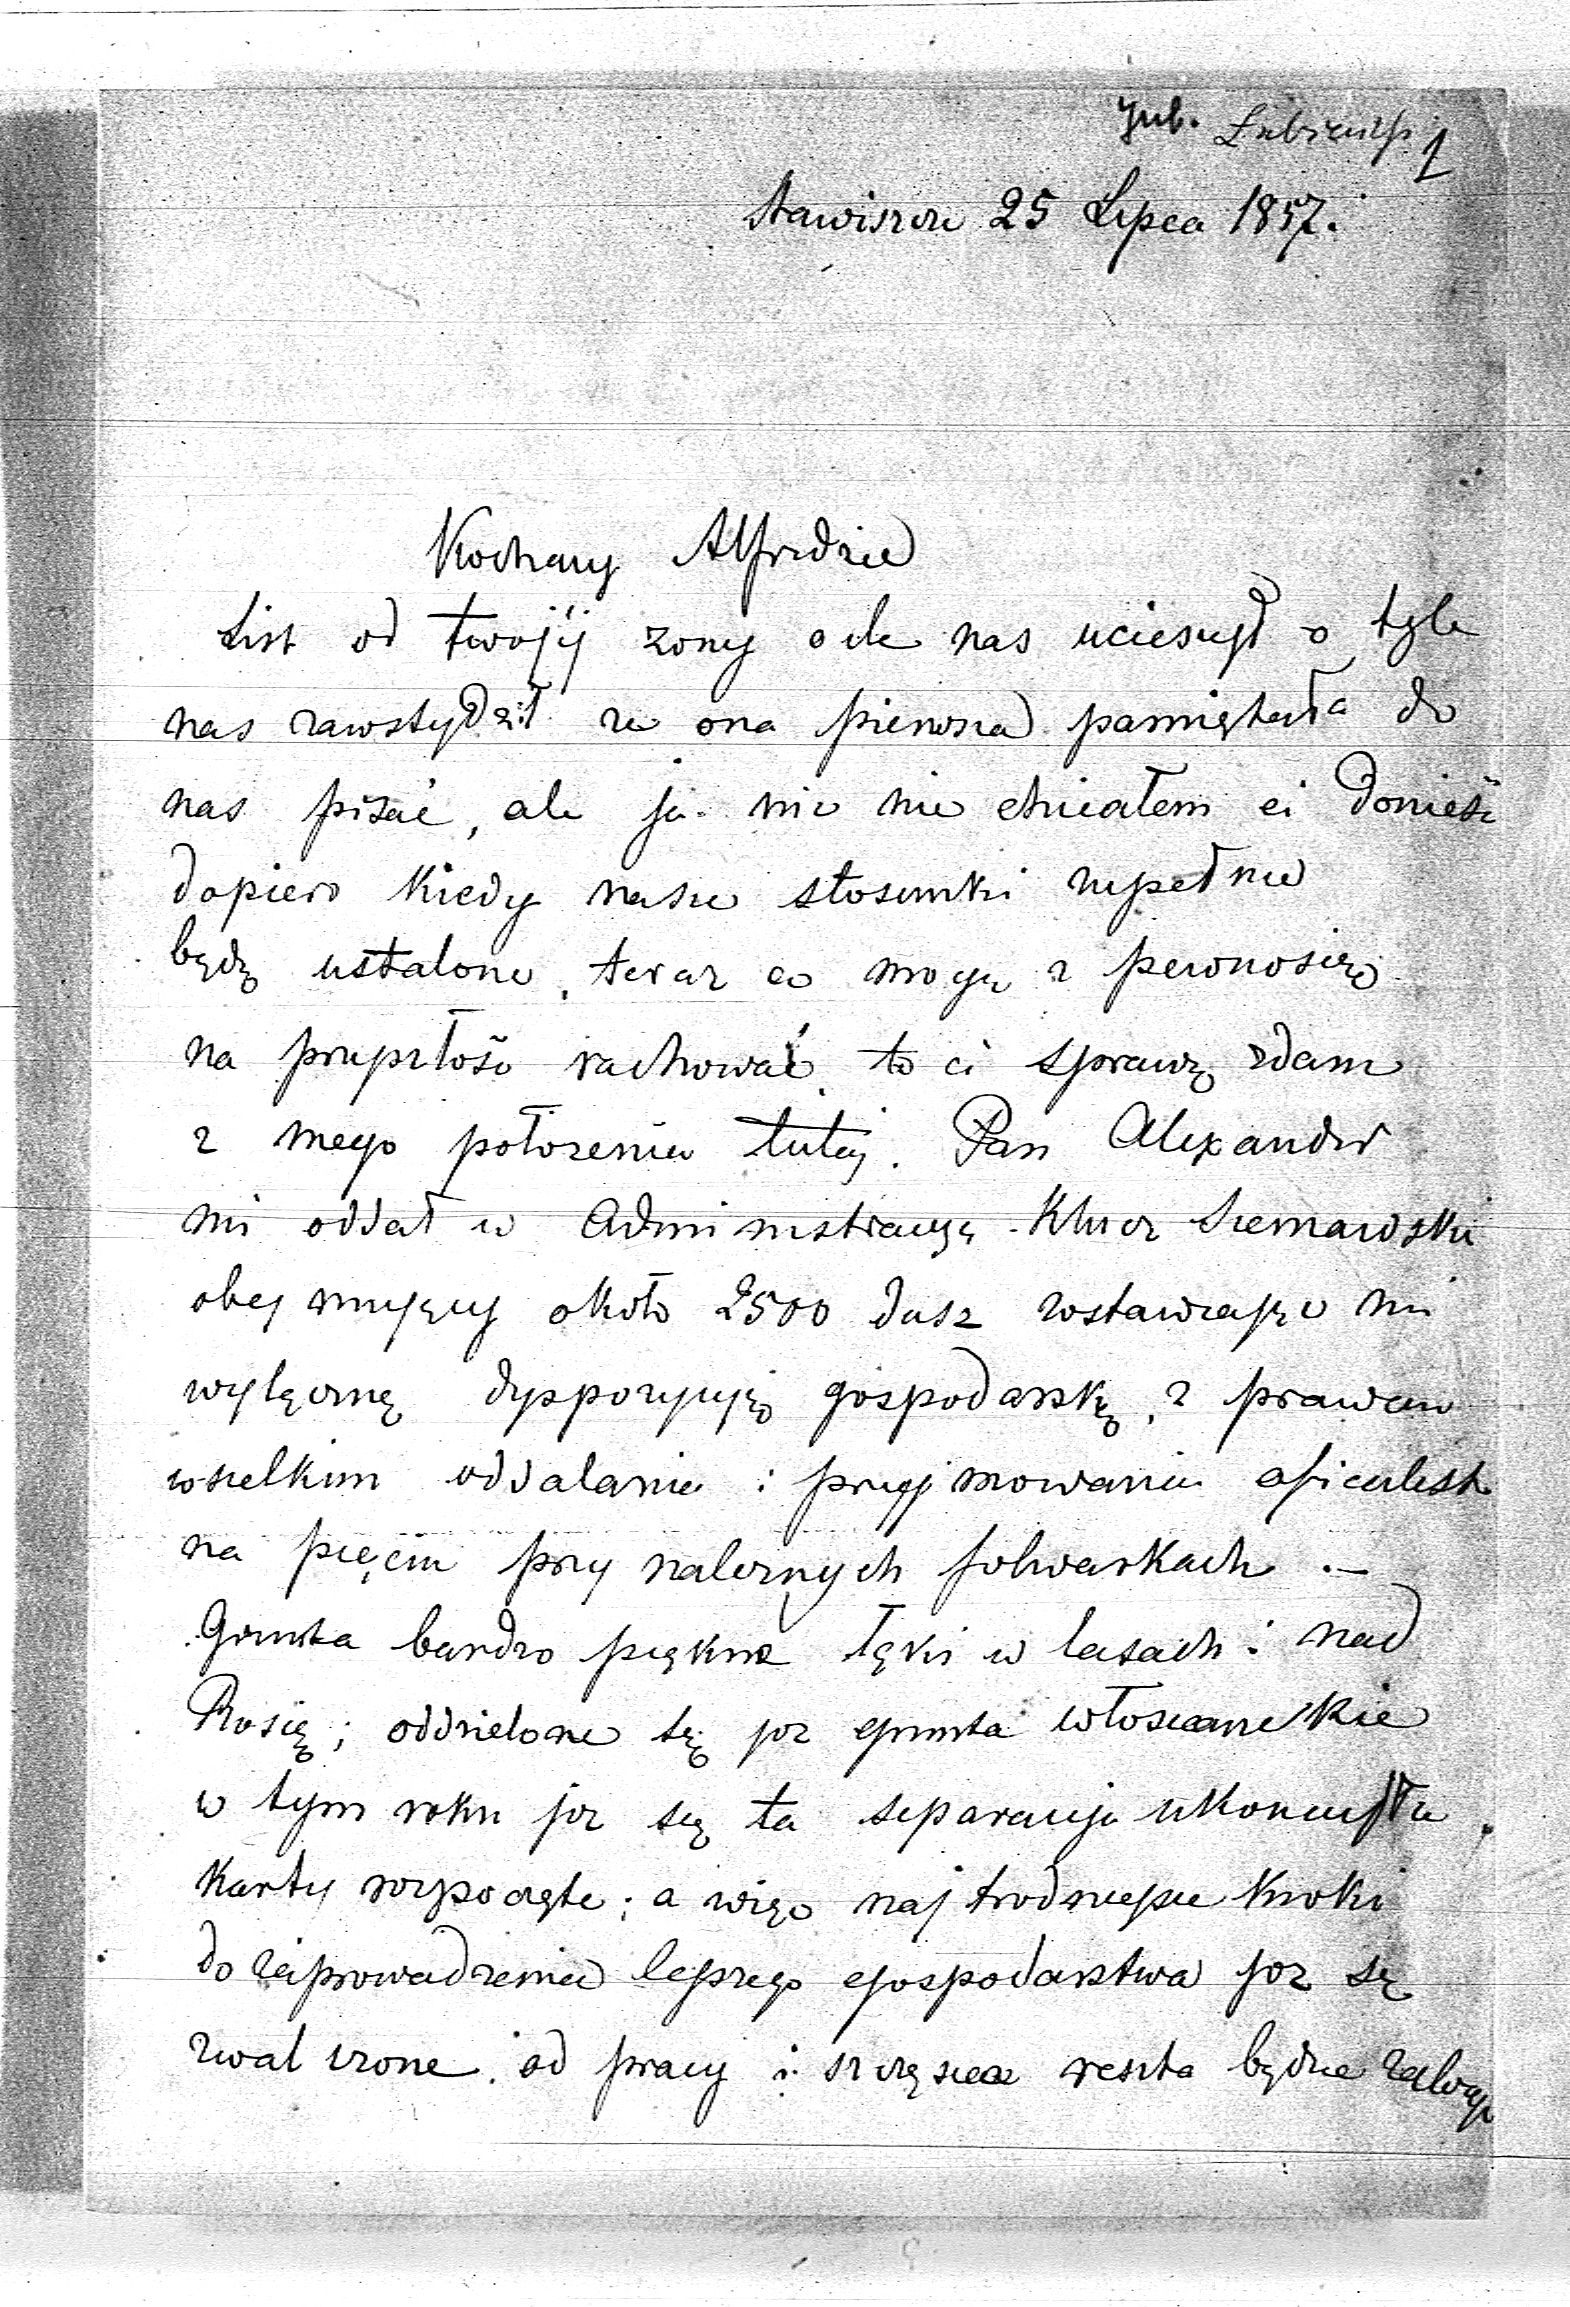 Stawiszcze 25 Lipca 1857.
Kochany Alfredzie
List od twojéj zony o ile nas ucieszył o tyle
nas zawstydził ze ona pierwsza pamiętała do
nas pisać, ale ja nic nie chciałem ci donieść
dopiero kiedy nasze stosunki zupełnie
będą ustalone, teraz co mogę z pewnością
na przyszłość rachować, to ci sprawę zdam
z mego położenia tutej. Pan Alexander
mi oddał w Administracyą Klucz
obejmujący około 2500 dusz zostawiając mi
wyłączną dyspozycyją gospodarską, z prawem
wszelkim oddalania i przyjmowania oficialistów
na pięciu przynależnych folwarkach .–
Grunta bardzo piękne łąki w lasach i nad
Rosią; oddzielone są już grunta włościańskie
w tym roku już się ta separacija ukończyła,
Karty rozpoczęte; a więc najtrudniejsze kroki
do zaprowadzenia lepszego gospodarstwa już są
zwalczone. od pracy i szczęścia reszta będzie